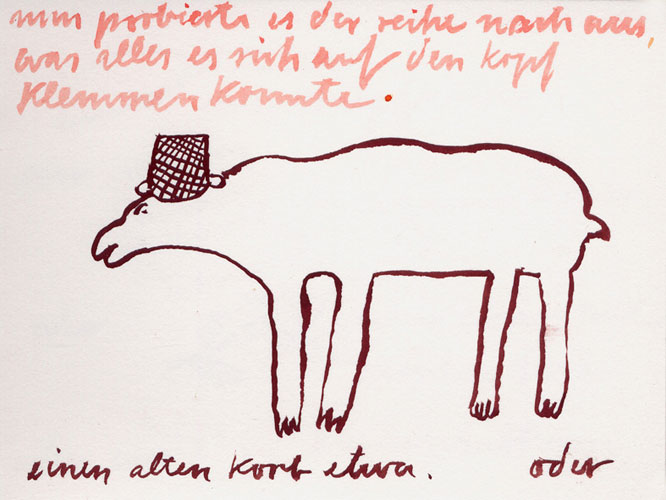 nun probierte es der reihe nach aus,
was alles es sich auf den kopf
klemmen konnte.
einen alten korb etwa. oder